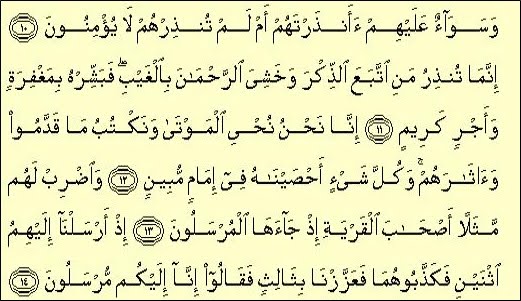 وَسَوَآءٌ عَلَيْهِمْ ءَأَنذَرْتَهُمْ أَمْ لَمْ تُنذِرْهُمْ لَا يُؤْمِنُونَ ١٠
إِنَّمَا تُنذِرُ مَنِ ٱتَّبَعَ ٱلذِّكْرَ وَخَشِىَ ٱلرَّحْمَٰنَ بِٱلْغَيْبِ ۖ فَبَشِّرْهُ بِمَغْفِرَةٍ
وَأَجْرٍ كَرِيمٍ ١١ إِنَّا نَحْنُ نُحْىِ ٱلْمَوْتَىٰ وَنَكْتُبُ مَا قَدَّمُوا۟
وَءَاثَٰرَهُمْ ۚ وَكُلَّ شَىْءٍ أَحْصَيْنَٰهُ فِىٓ إِمَامٍ مُّبِينٍ ١٢ وَٱضْرِبْ لَهُم
مَّثَلًا أَصْحَٰبَ ٱلْقَرْيَةِ إِذْ جَآءَهَا ٱلْمُرْسَلُونَ ١٣ إِذْ أَرْسَلْنَآ إِلَيْهِمُ
ٱثْنَيْنِ فَكَذَّبُوهُمَا فَعَزَّزْنَا بِثَالِثٍ فَقَالُوٓا۟ إِنَّآ إِلَيْكُم مُّرْسَلُونَ ١٤